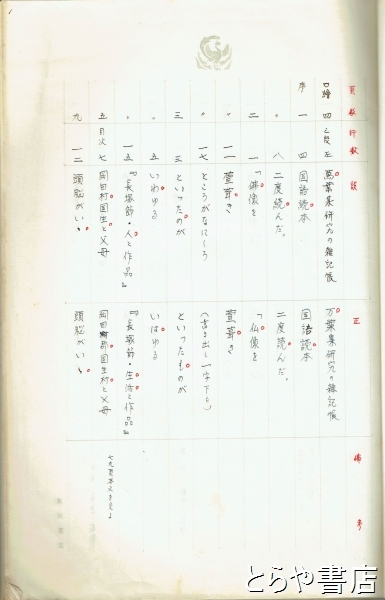 頁数 行数 誤 正 備考
口繪 四 上段左 萬葉集研究の雑記帳 万葉集研究の雑記帳
序 一 四 国語読本 国語読本
〃 八 二度続んだ。 二度読んだ。
二 一 「佛像を 「仏像を
〃 一一 萱葺き 萱葺き
〃 一七 ところがなにしろ (書き出し一字下り)
三 三 といったのが といったものが
〃 五 いわゆる いはゆる
〃 一五 『長塚節・人と作品』 『長塚節・生活と作品』
五 目次 七 岡田村国生と父母 岡田郡国生村と父母
九 一二 頭脳がいゝ 頭脳がいゝ
とらや書店